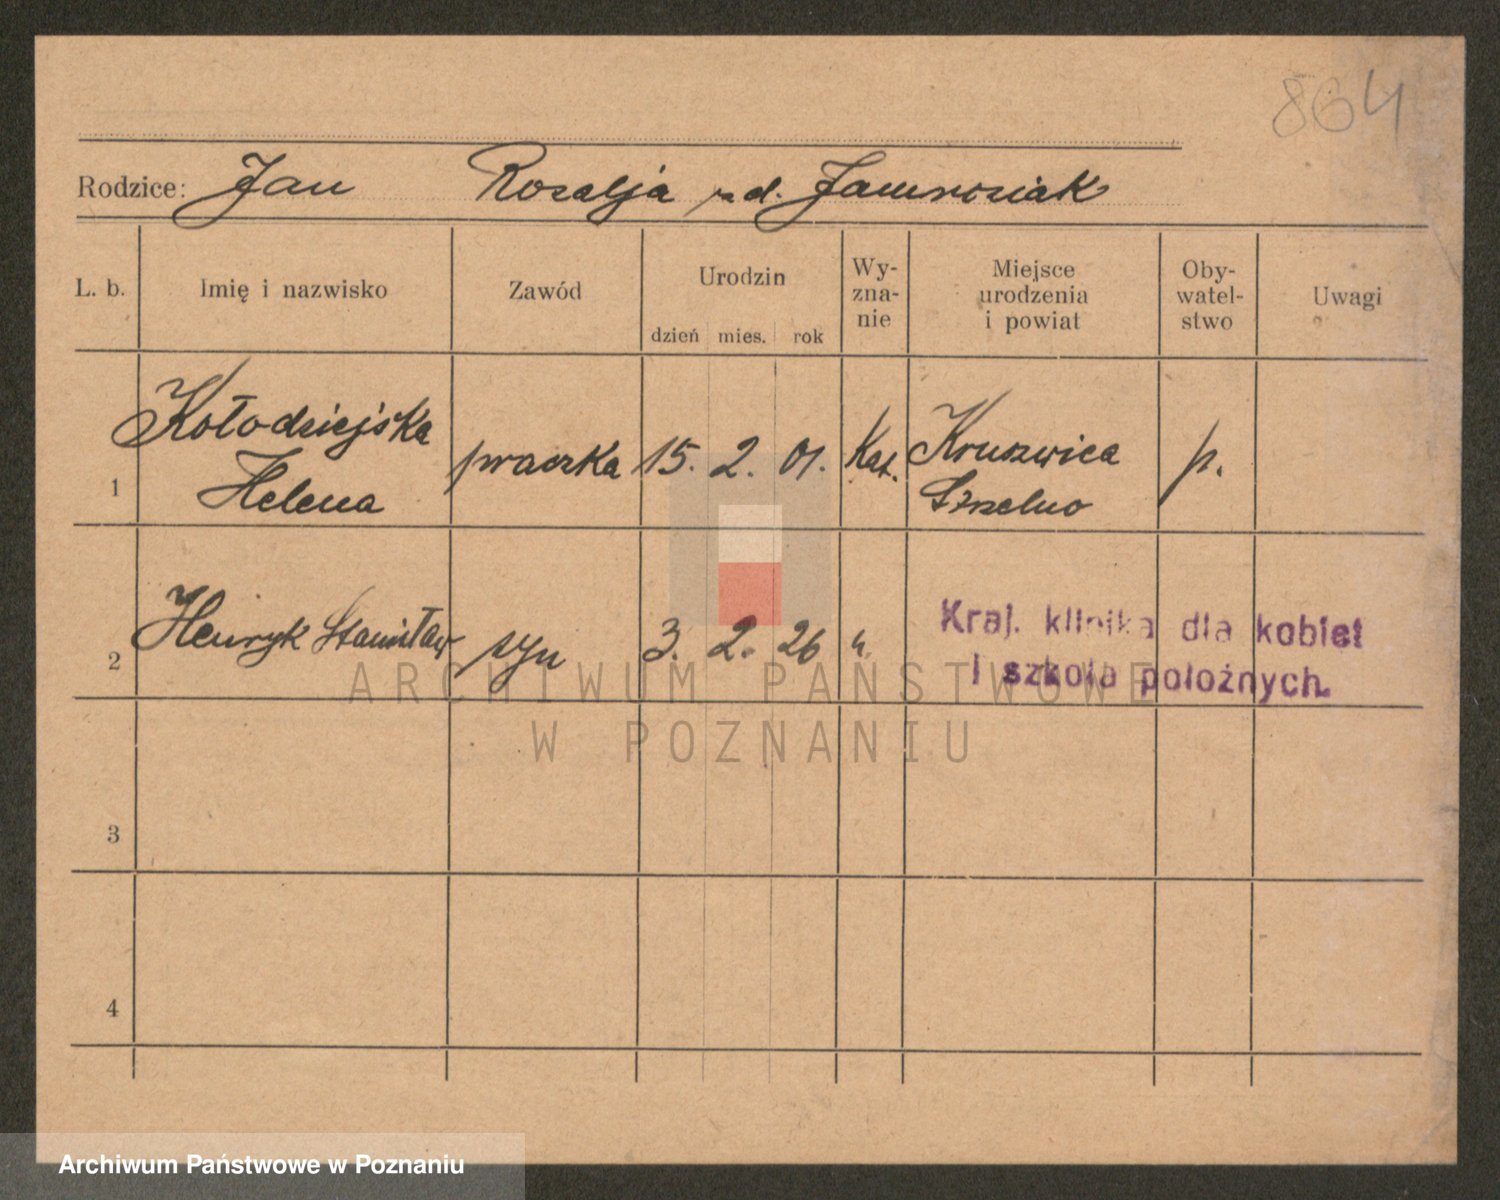 864
Rodzice: Jan Rozalja zd. Jamrosiak
L. b. Imię i nazwisko Zawód Urodzin dzień mies. rok Wy-zna-nie Miejsce urodzenia i powiat Oby-watel-stwo Uwagi
Kołodziejska
1 Helena praczka 15. 2. 01. Kat. Kruszwica p.
Strzelno
2 Henryk Stanisław syn 3. 2. 26 Kraj. klinika dla kobiet
i szkoła położnych.
ARCHIWUM PAŃSTWOWE
W POZNANIU
3
4
Archiwum Państwowe w Poznaniu